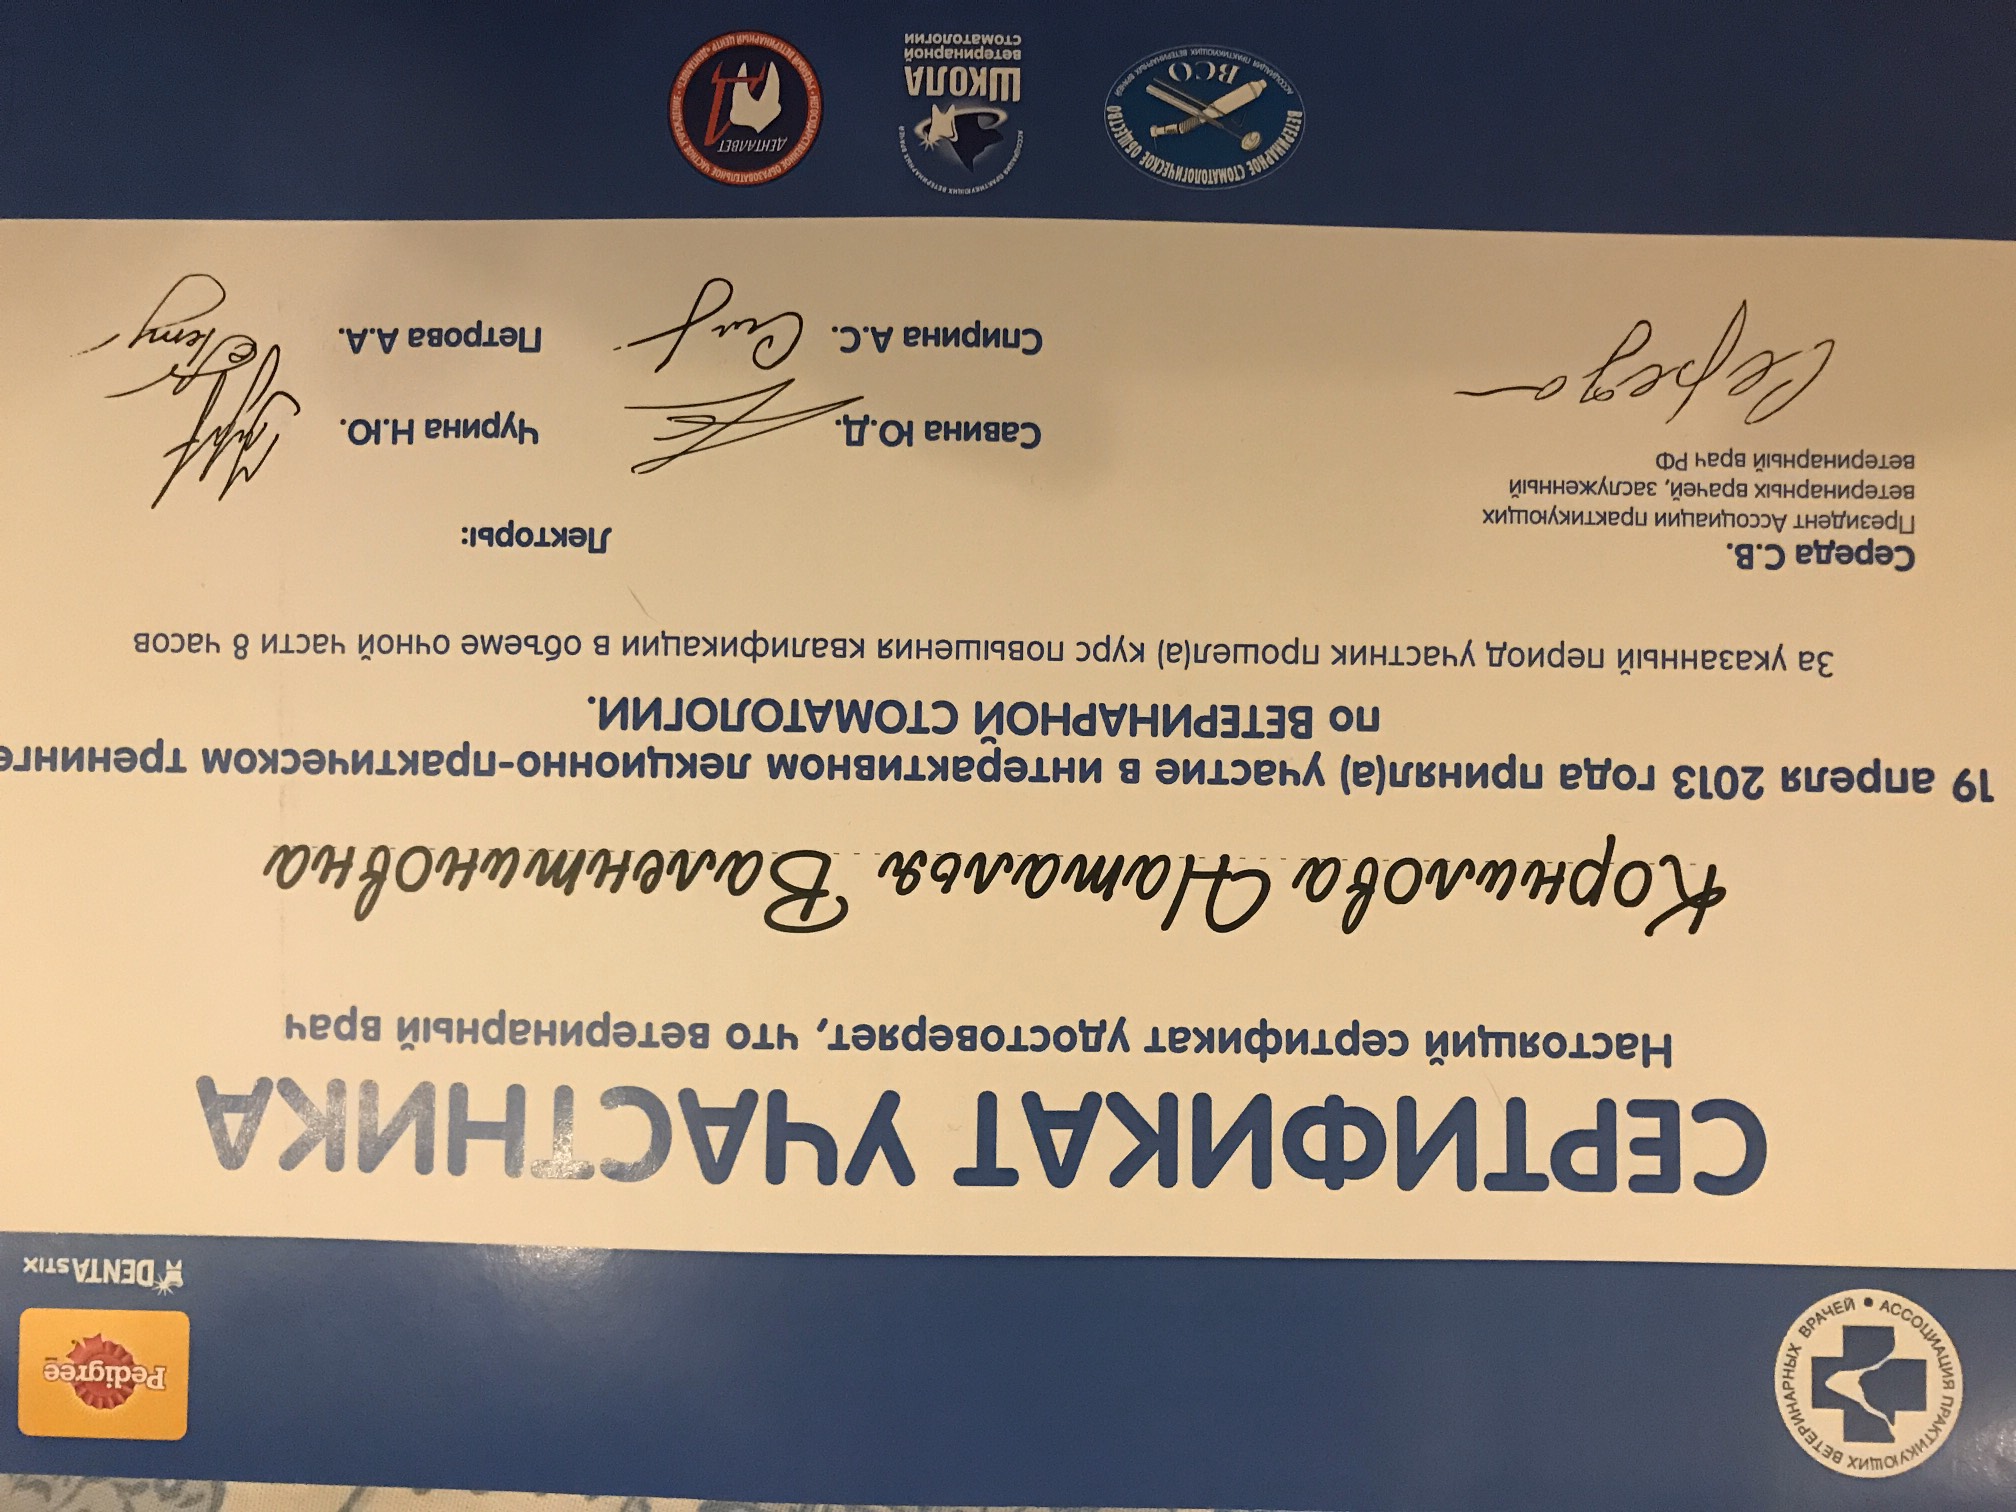 АССОЦИАЦИЯ ПРАКТИКУЮЩИХ ВЕТЕРИНАРНЫХ ВРАЧЕЙ •
Pedigree
DENTASTIX
СЕРТИФИКАТ УЧАСТНИКА
Настоящий сертификат удостоверяет, что ветеринарный врач
Корнилова Наталья Валентиновна
19 апреля 2013 года принял(а) участие в интерактивном лекционно-практическом тренинге
по ВЕТЕРИНАРНОЙ СТОМАТОЛОГИИ.
За указанный период участник прошел(а) курс повышения квалификации в объеме очной части 8 часов
Середа С.В.
Президент Ассоциации практикующих
ветеринарных врачей, заслуженный
ветеринарный врач РФ
Середа
Лекторы:
Савина Ю.Д. Чурина Н.Ю.
Спирина А.С. Петрова А.А.
ВЕТЕРИНАРНОЕ СТОМАТОЛОГИЧЕСКОЕ ОБЩЕСТВО
ВСО
АССОЦИАЦИЯ ПРАКТИКУЮЩИХ ВЕТЕРИНАРНЫХ ВРАЧЕЙ
АССОЦИАЦИЯ ПРАКТИКУЮЩИХ ВЕТЕРИНАРНЫХ ВРАЧЕЙ
ШКОЛА
ветеринарной
стоматологии
НЕГОСУДАРСТВЕННОЕ ОБРАЗОВАТЕЛЬНОЕ ЧАСТНОЕ УЧРЕЖДЕНИЕ
ДЕНТАЛВЕТ